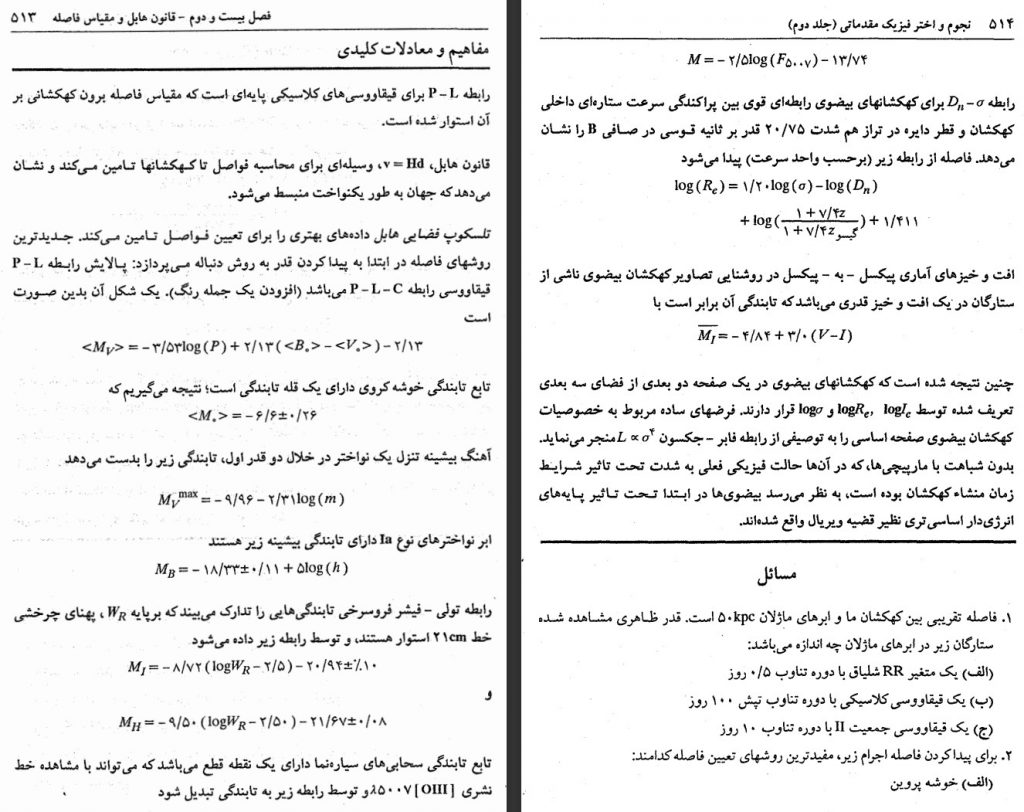 فصل بیست و دوم - قانون هابل و مقیاس فاصله ۵۱۳
مفاهیم و معادلات کلیدی
رابطه P – L برای قیفاووسی‌های کلاسیکی پایه‌ای است که مقیاس فاصله برون کهکشانی بر
آن استوار شده است.
قانون هابل، v = Hd، وسیله‌ای برای محاسبه فواصل تا کهکشانها تامین می‌کند و نشان
می‌دهد که جهان به طور یکنواخت منبسط می‌شود.
تلسکوپ فضایی هابل داده‌های بهتری را برای تعیین فواصل تامین می‌کند. جدیدترین
روشهای فاصله در ابتدا به پیدا کردن قدر به روش دنباله می‌پردازد: پالایش رابطه P – L
قیفاووسی رابطه P – L – C می‌باشد (افزودن یک جمله رنگ). یک شکل آن بدین صورت
است
<M_V> = – ۳/۵۳log(P) + ۲/۱۳(<B_°> – <V_°>) – ۲/۱۳
تابع تابندگی خوشه کروی دارای یک قله تابندگی است؛ نتیجه می‌گیریم که
<M_°> = – ۶/۶±۰/۲۶
آهنگ بیشینه تنزل یک نواختر در خلال دو قدر اول، تابندگی زیر را بدست می‌دهد
M_V^max = – ۹/۹۶ – ۲/۳۱log(m)
ابر نواخترهای نوع Ia دارای تابندگی بیشینه زیر هستند
M_B = – ۱۸/۳۳±۰/۱۱ + ۵log(h)
رابطه تولی - فیشر فروسرخی تابندگی‌هایی را تدارک می‌بیند که برپایه W_R، پهنای چرخشی
خط ۲۱cm استوار هستند، و توسط رابطه زیر داده می‌شود
M_I = – ۸/۷۲(logW_R – ۲/۵) – ۲۰/۹۴±٪۱۰
و
M_H = – ۹/۵۰(logW_R – ۲/۵۰) – ۲۱/۶۷±۰/۰۸
تابع تابندگی سحابی‌های سیاره‌نما دارای یک نقطه قطع می‌باشد که می‌تواند با مشاهده خط
نشری [OIII] λ۵۰۰۷ و توسط رابطه زیر به تابندگی تبدیل شود
۵۱۴ نجوم و اختر فیزیک مقدماتی (جلد دوم)
M = – ۲/۵log(F_۵۰۰۷) – ۱۳/۷۴
رابطه D_n – σ برای کهکشانهای بیضوی رابطه‌ای قوی بین پراکندگی سرعت ستاره‌ای داخلی
کهکشان و قطر دایره در تراز هم شدت ۲۰/۷۵ قدر بر ثانیه قوسی در صافی B را نشان
می‌دهد. فاصله از رابطه زیر (برحسب واحد سرعت) پیدا می‌شود
log(R_e) = ۱/۲۰log(σ) – log(D_n)
+ log(۱ + ۷/۴z / ۱ + ۷/۴z_گیسو) + ۱/۴۱۱
افت و خیزهای آماری پیکسل - به - پیکسل در روشنایی تصاویر کهکشان بیضوی ناشی از
ستارگان در یک افت و خیز قدری می‌باشد که تابندگی آن برابر است با
M̅_I = – ۴/۸۴ + ۳/۰(V – I)
چنین نتیجه شده است که کهکشانهای بیضوی در یک صفحه دو بعدی از فضای سه بعدی
تعریف شده توسط logR_e، logI_e و logσ قرار دارند. فرضهای ساده مربوط به خصوصیات
کهکشان بیضوی صفحه اساسی را به توصیفی از رابطه فابر - جکسون L ∝ σ^۴ منجر می‌نماید.
بدون شباهت با مارپیچی‌ها، که در آن‌ها حالت فیزیکی فعلی به شدت تحت تاثیر شرایط
زمان منشاء کهکشان بوده است، به نظر می‌رسد بیضوی‌ها در ابتدا تحت تاثیر پایه‌های
انرژی‌دار اساسی‌تری نظیر قضیه ویریال واقع شده‌اند.
مسائل
۱. فاصله تقریبی بین کهکشان ما و ابرهای ماژلان ۵۰kpc است. قدر ظاهری مشاهده شده
ستارگان زیر در ابرهای ماژلان چه اندازه می‌باشد:
(الف) یک متغیر RR شلیاق با دوره تناوب ۰/۵ روز
(ب) یک قیفاووسی کلاسیکی با دوره تناوب تپش ۱۰۰ روز
(ج) یک قیفاووسی جمعیت II با دوره تناوب ۱۰ روز
۲. برای پیدا کردن فاصله اجرام زیر، مفیدترین روشهای تعیین فاصله کدامند:
(الف) خوشه پروین